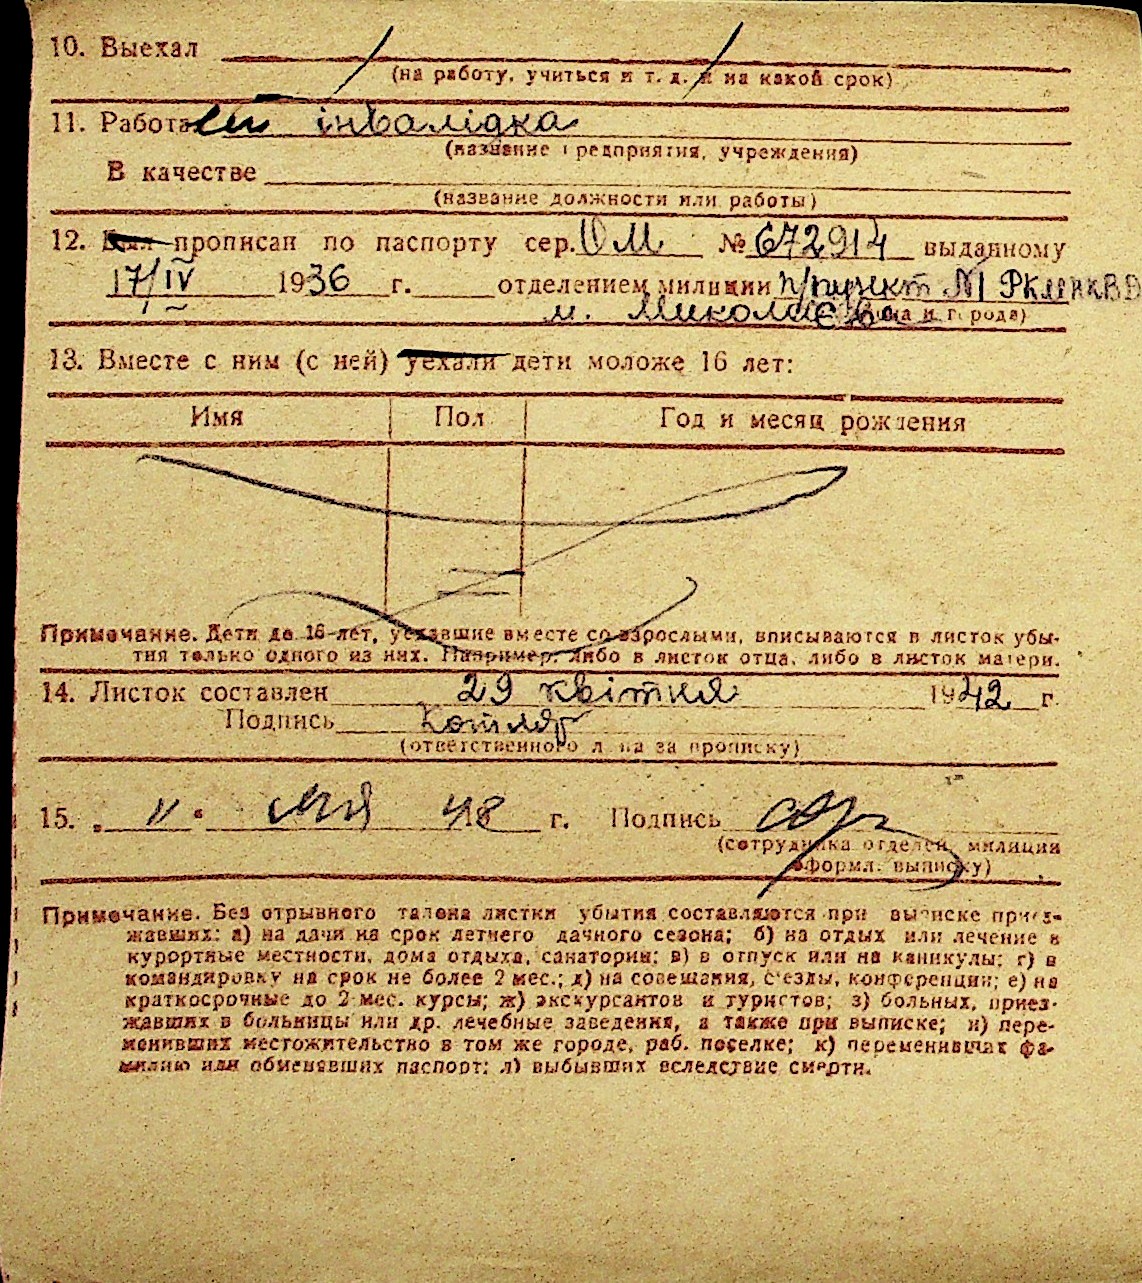 10. Выехал
(на работу, учиться и т. д. и на какой срок)
11. Работа інвалідка
(название предприятия, учреждения)
В качестве
(название должности или работы)
12. Был прописан по паспорту сер. ОМ № 672914 выданному
17/IV 1936 г. отделением милиции п/пункт РКМ НКВД
м. Миколаєва города)
13. Вместе с ним (с ней) уехали дети моложе 16 лет:
Имя Пол Год и месяц рождения
Примечание. Дети до 16-лет, уехавшие вместе со взрослыми, вписываются в листок убы-
тия только одного из них. Например: либо в листок отца, либо в листок матери.
14. Листок составлен 29 квітня 1942 г.
Подпись Котляр
(ответственного лица за прописку)
15. „ 11 “ 48 г. Подпись
(сотрудника отделен. милиции
оформл. выписку)
Примечание. Без отрывного талона листки убытия составляются при выписке приез-
жавших: а) на дачи на срок летнего дачного сезона; б) на отдых или лечение в
курортные местности, дома отдыха, санатории; в) в отпуск или на каникулы; г) в
командировку на срок не более 2 мес.; д) на совещания, съезды, конференции; е) на
краткосрочные до 2 мес. курсы; ж) экскурсантов и туристов; з) больных, приез-
жавших в больницы или др. лечебные заведения, а также при выписке; и) пере-
менивших местожительство в том же городе, раб. поселке; к) переменивших фа-
милию или обменявших паспорт; л) выбывших вследствие смерти.